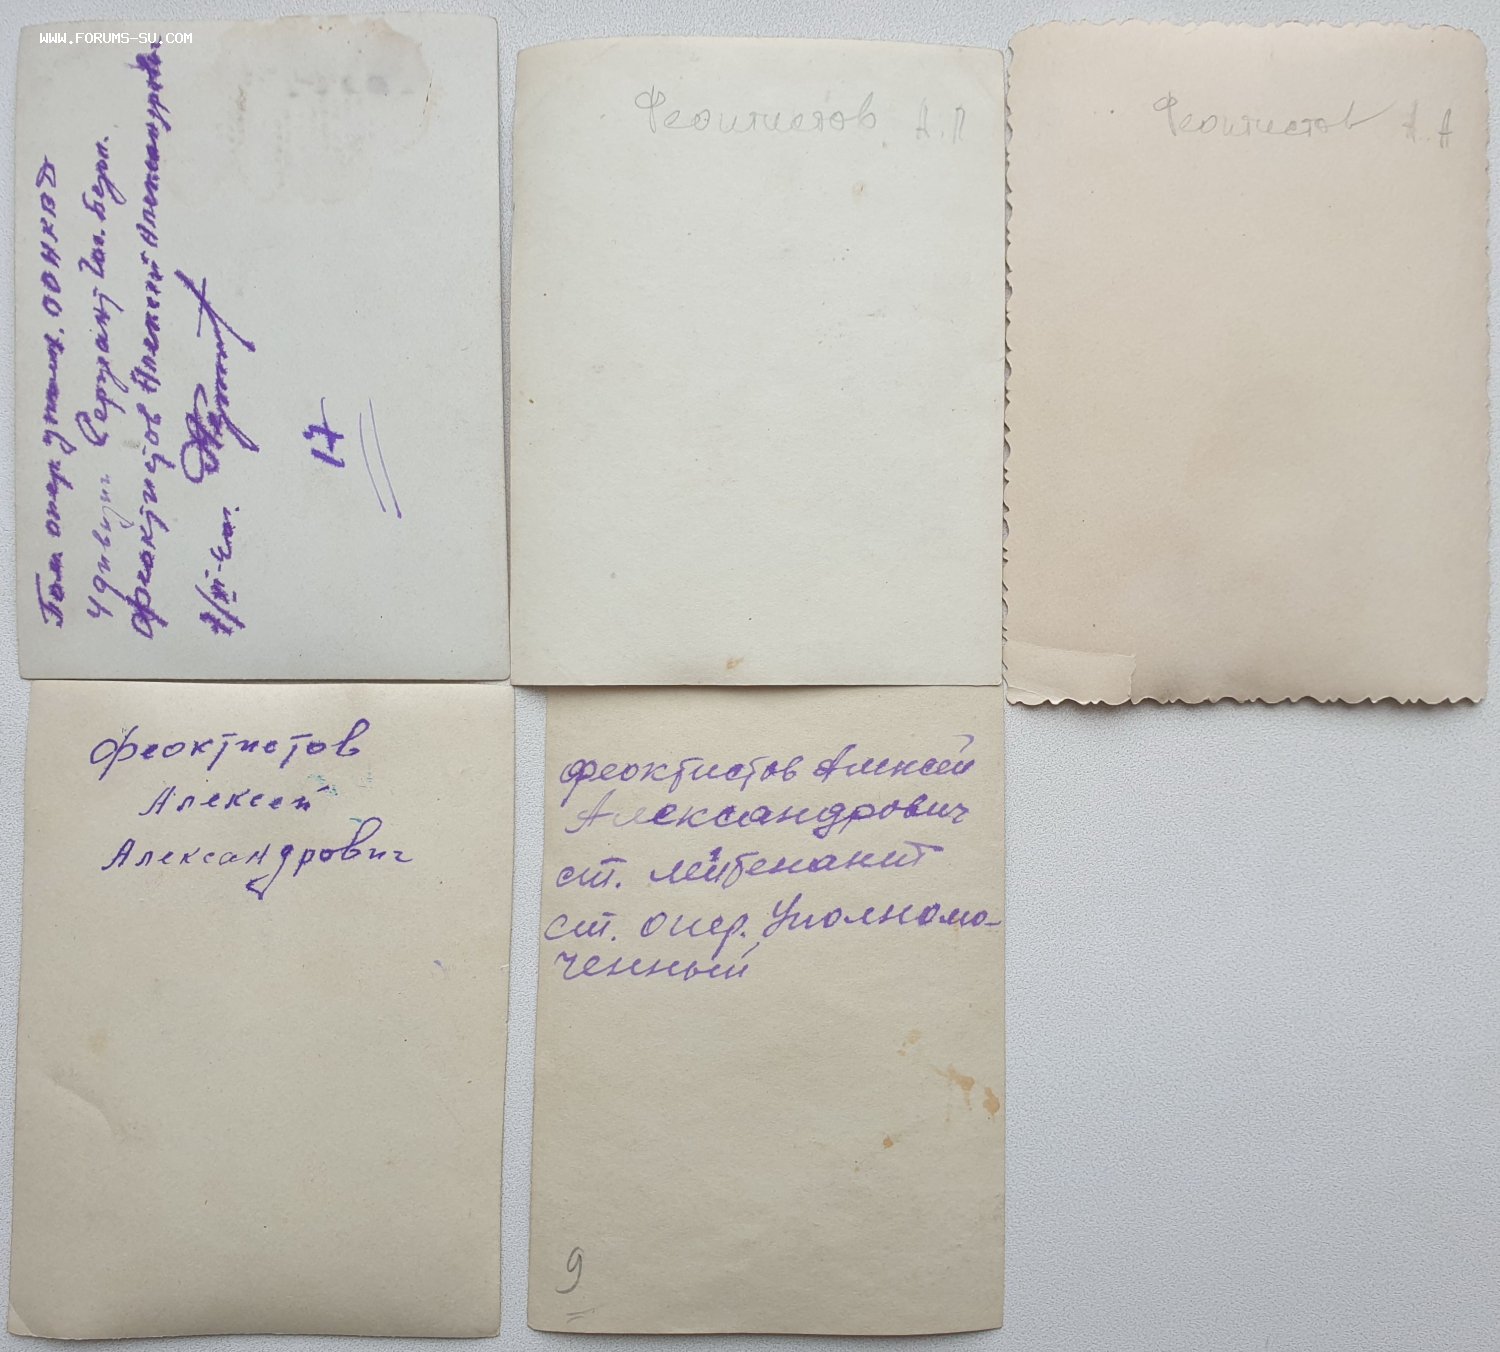 WWW.FORUMS-SU.COM
Пом. опер. уполн. ОО НКВД
4 дивизии Сержант Гос. Безоп.
Феоктистов Алексей Александрович
17
Феоктистов А. П
Феоктистов А. А
Феоктистов
Алексей
Александрович
Феоктистов Алексей
Александрович
ст. лейтенант
ст. опер. Уполномо-
ченный
9